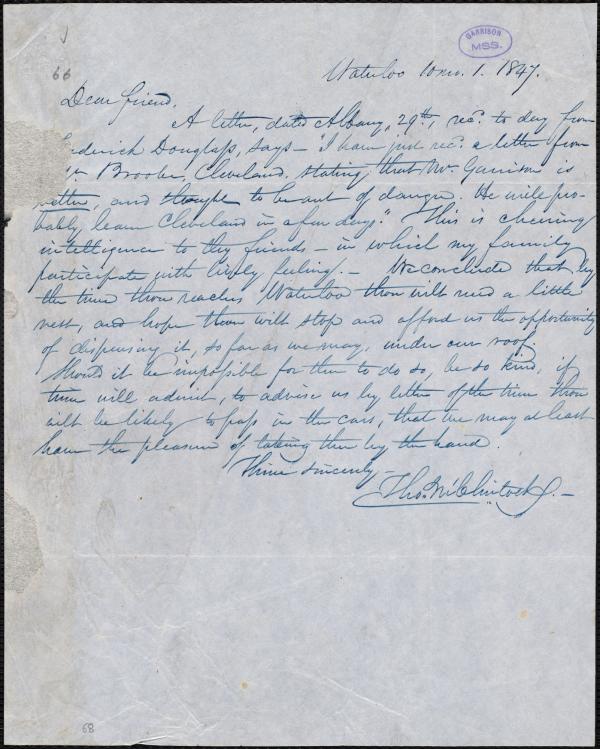 66
GARRISON
MSS.
Waterloo 10mo. 1. 1847.
Dear friend.
A letter, dated Albany, 29th, rec.d to day from
ederick Douglass, says – "I have just rec.d a letter from
Brooke, Cleveland, stating that Mr. Garrison is
better, and thought to be out of danger. He will pro-
bably leave Cleveland in a few days." This is cheering
intelligence to thy friends – in which my family
participate with lively feeling. – We conclude that by
the time thou reaches Waterloo thou wilt need a little
rest, and hope thou wilt stop and afford us the opportunity
of dispensing it, so far as we may, under our roof.
Should it be impossible for thee to do so, be so kind, if
time will admit, to advise us by letter of the time thou
wilt be likely to pass in the cars, that we may at least
have the pleasure of taking thee by the hand.
Thine sincerely –
Tho. M'Clintock. –
68